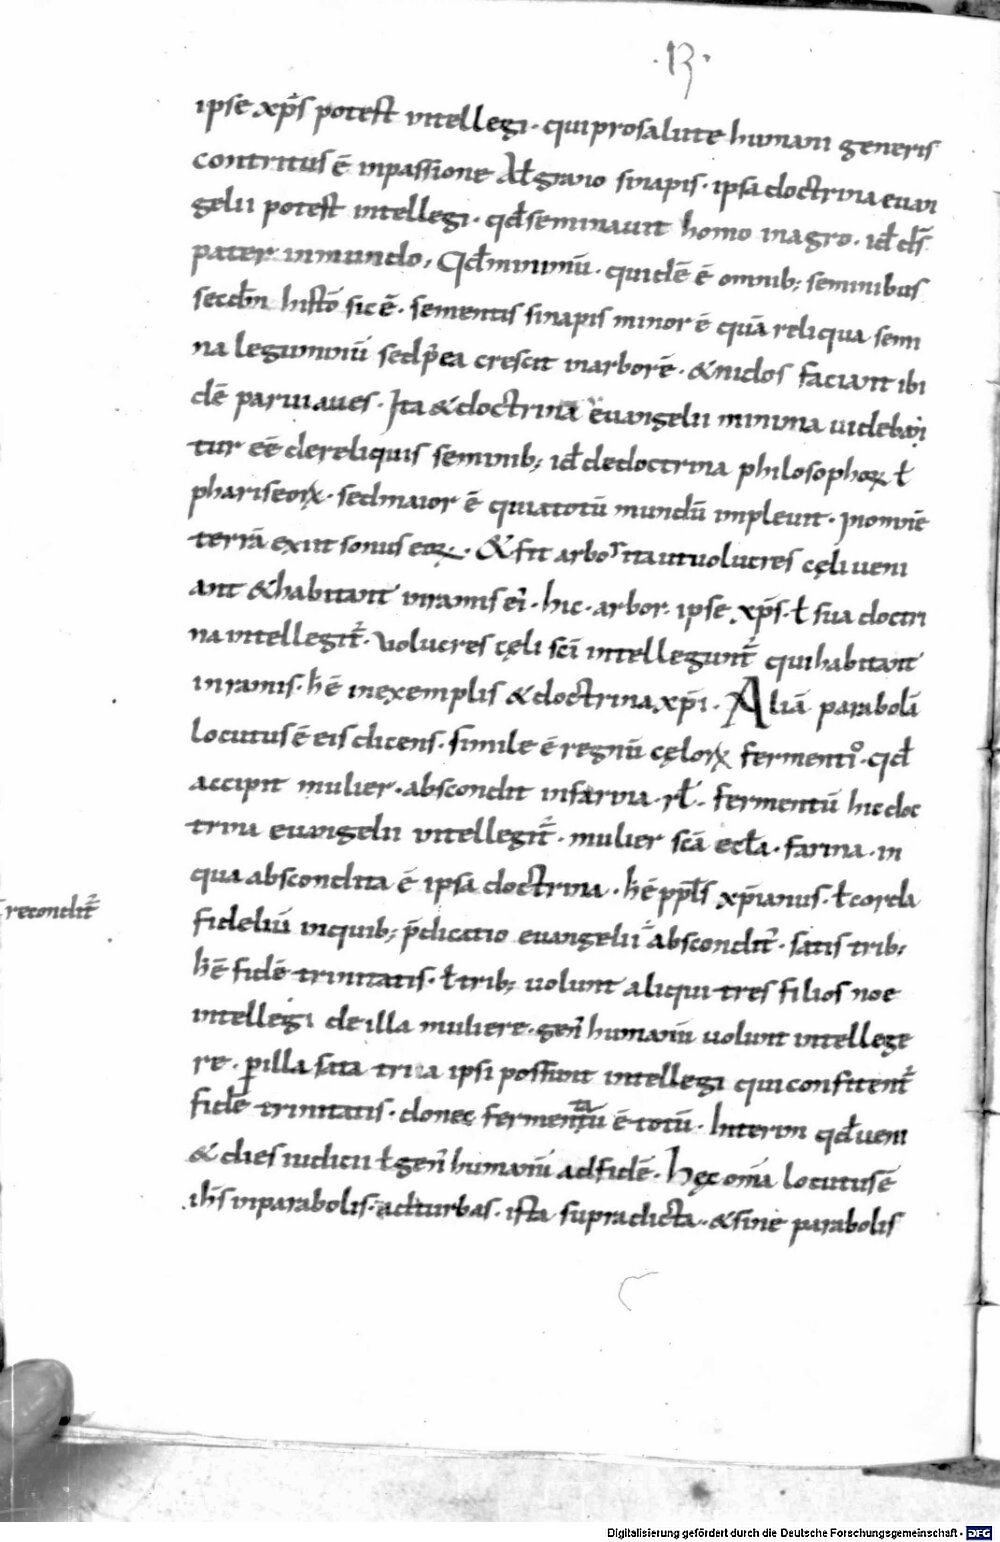 ·13·
ipse xp̄s potest intellegi · qui pro salute humani generis
contritus ē in passione Aɫ grano sinapis · ipsa doctrina euan
gelii potest intellegi · qđ seminauit homo in agro · iđ ds̄
pater in mundo, Qđ minimū · quidē ē omnib; seminibus
secdm̄ histō sic ē · sementis sinapis minor ē quā reliqua semi
na leguminū sed p̄ea crescit in arborē · & nidos faciunt ibi
dē parui aues · Ita & doctrina euangelii minima uideba
tur eē de reliquis seminib; iđ de doctrina philosophoꝝ ɫ
phariseoꝝ · sed maior ē quia totū mundū impleuit · In omnē
terrā exiit sonus eoꝝ · & fit arbor ita ut uolucres cęli ueni
ant & habitant in ramis ei᾽ · hic · arbor · ipse xp̄s · ɫ sua doctri
na intellegit᷑ · uolucres cęli sc̄i intellegunt᷑ qui habitant
in ramis · h̄ē in exemplis & doctrina xp̄i · Aliā parabolā
locutus ē eis dicens · simile ē regnū cęloꝝ fermento · qđ
accipit mulier · abscondit in farina · rɫ · fermentū hic doc
trina euangelii intellegit᷑ · mulier sc̄a eccɫa · farina · in
qua abscondita ē ipsa doctrina · h̄ē ppɫs xp̄ianus · ɫ corda
recondit᷑
fideliū in quib; p̄dicatio euangelii abscondit᷑ · satis trib;
h̄ē fidē trinitatis · ɫ trib; uolunt aliqui tres filios noe
intellegi de illa muliere · gen᾽ humanū uolunt intellege
re · ꝑ illa sata tria ipsi possunt intellegi qui confitent᷑
fidē trinitatis · donec fermentatū ē totū · Interim qđ ueni
& dies iudicii ɫ gen᾽ humanū ad fidē · Hęc om̄a locutus ē
ih̄s in parabolis · ad turbas · ista supradicta · & sine parabolis
Digitalisierung gefördert durch die Deutsche Forschungsgemeinschaft - DFG